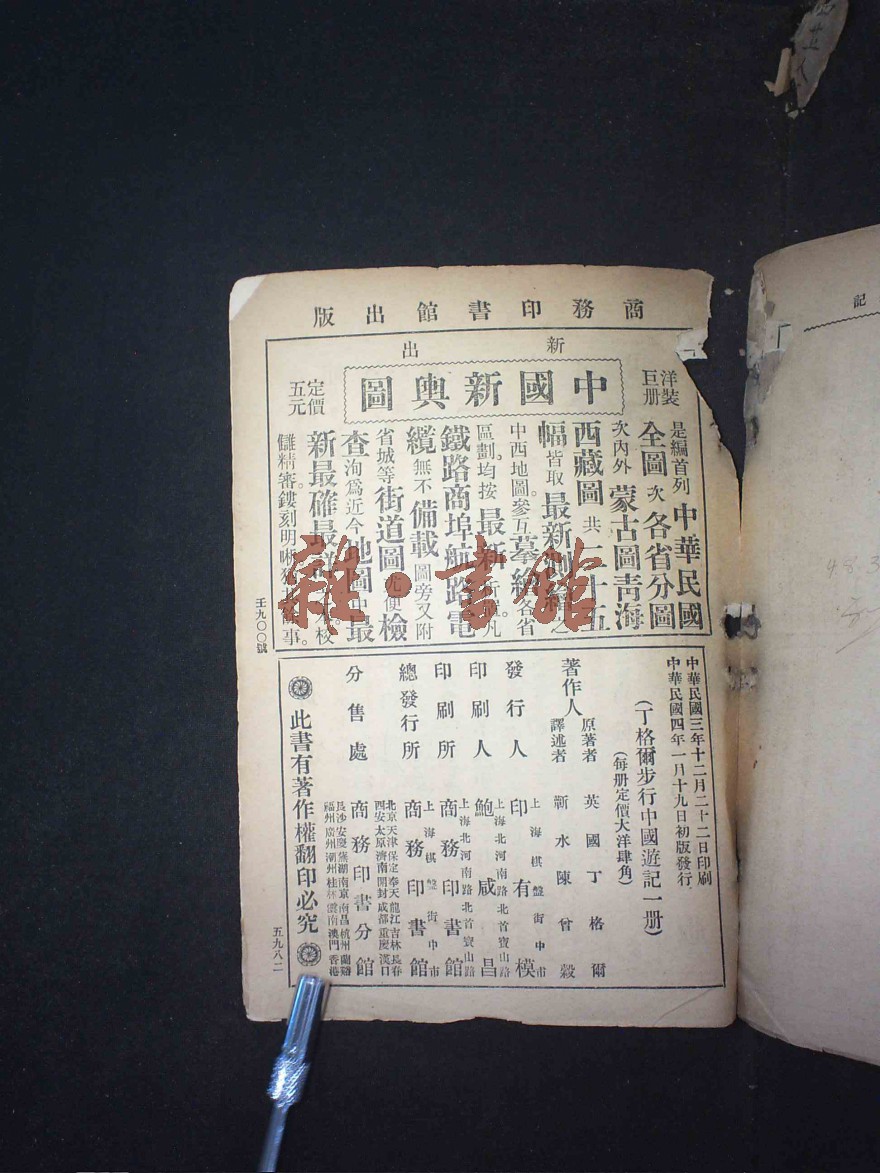 商務印書館出版
新出
中國新輿圖
洋裝
巨册
定價
五元
是編首列中華民國
全圖次各省分圖
次內外蒙古圖靑海
西藏圖共二十五
幅皆取最新測繪之
中西地圖參互摹繪各省
區劃均按最新所凡
鐵路商埠航路電
纜無不備載圖旁又附
省城等街道圖尤便檢
查洵爲近今地圖中最
新最確最校
讎精審。鏤刻明晰猶其餘事。
壬九〇〇號
中華民國三年十二月二十二日印刷
中華民國四年一月十九日初版發行
(丁格爾步行中國遊記一册)
(每册定價大洋肆角)
著作人
原著者 英國丁格爾
譯述者 蘄水陳曾穀
發行人 上海棋盤街中市 印有模
印刷人 上海北河南路北首寶山路 鮑咸昌
印刷所 上海北河南路北首寶山路 商務印書館
總發行所 上海棋盤街中市 商務印書館
分售處 商務印書分館
北京天津保定奉天龍江吉林長春
西安太原濟南開封成都重慶漢口
長沙安慶蕪湖南京南昌杭州蘭谿
福州廣州潮州桂林雲南澳門香港
此書有著作權翻印必究
五九八二
記
雜·書館